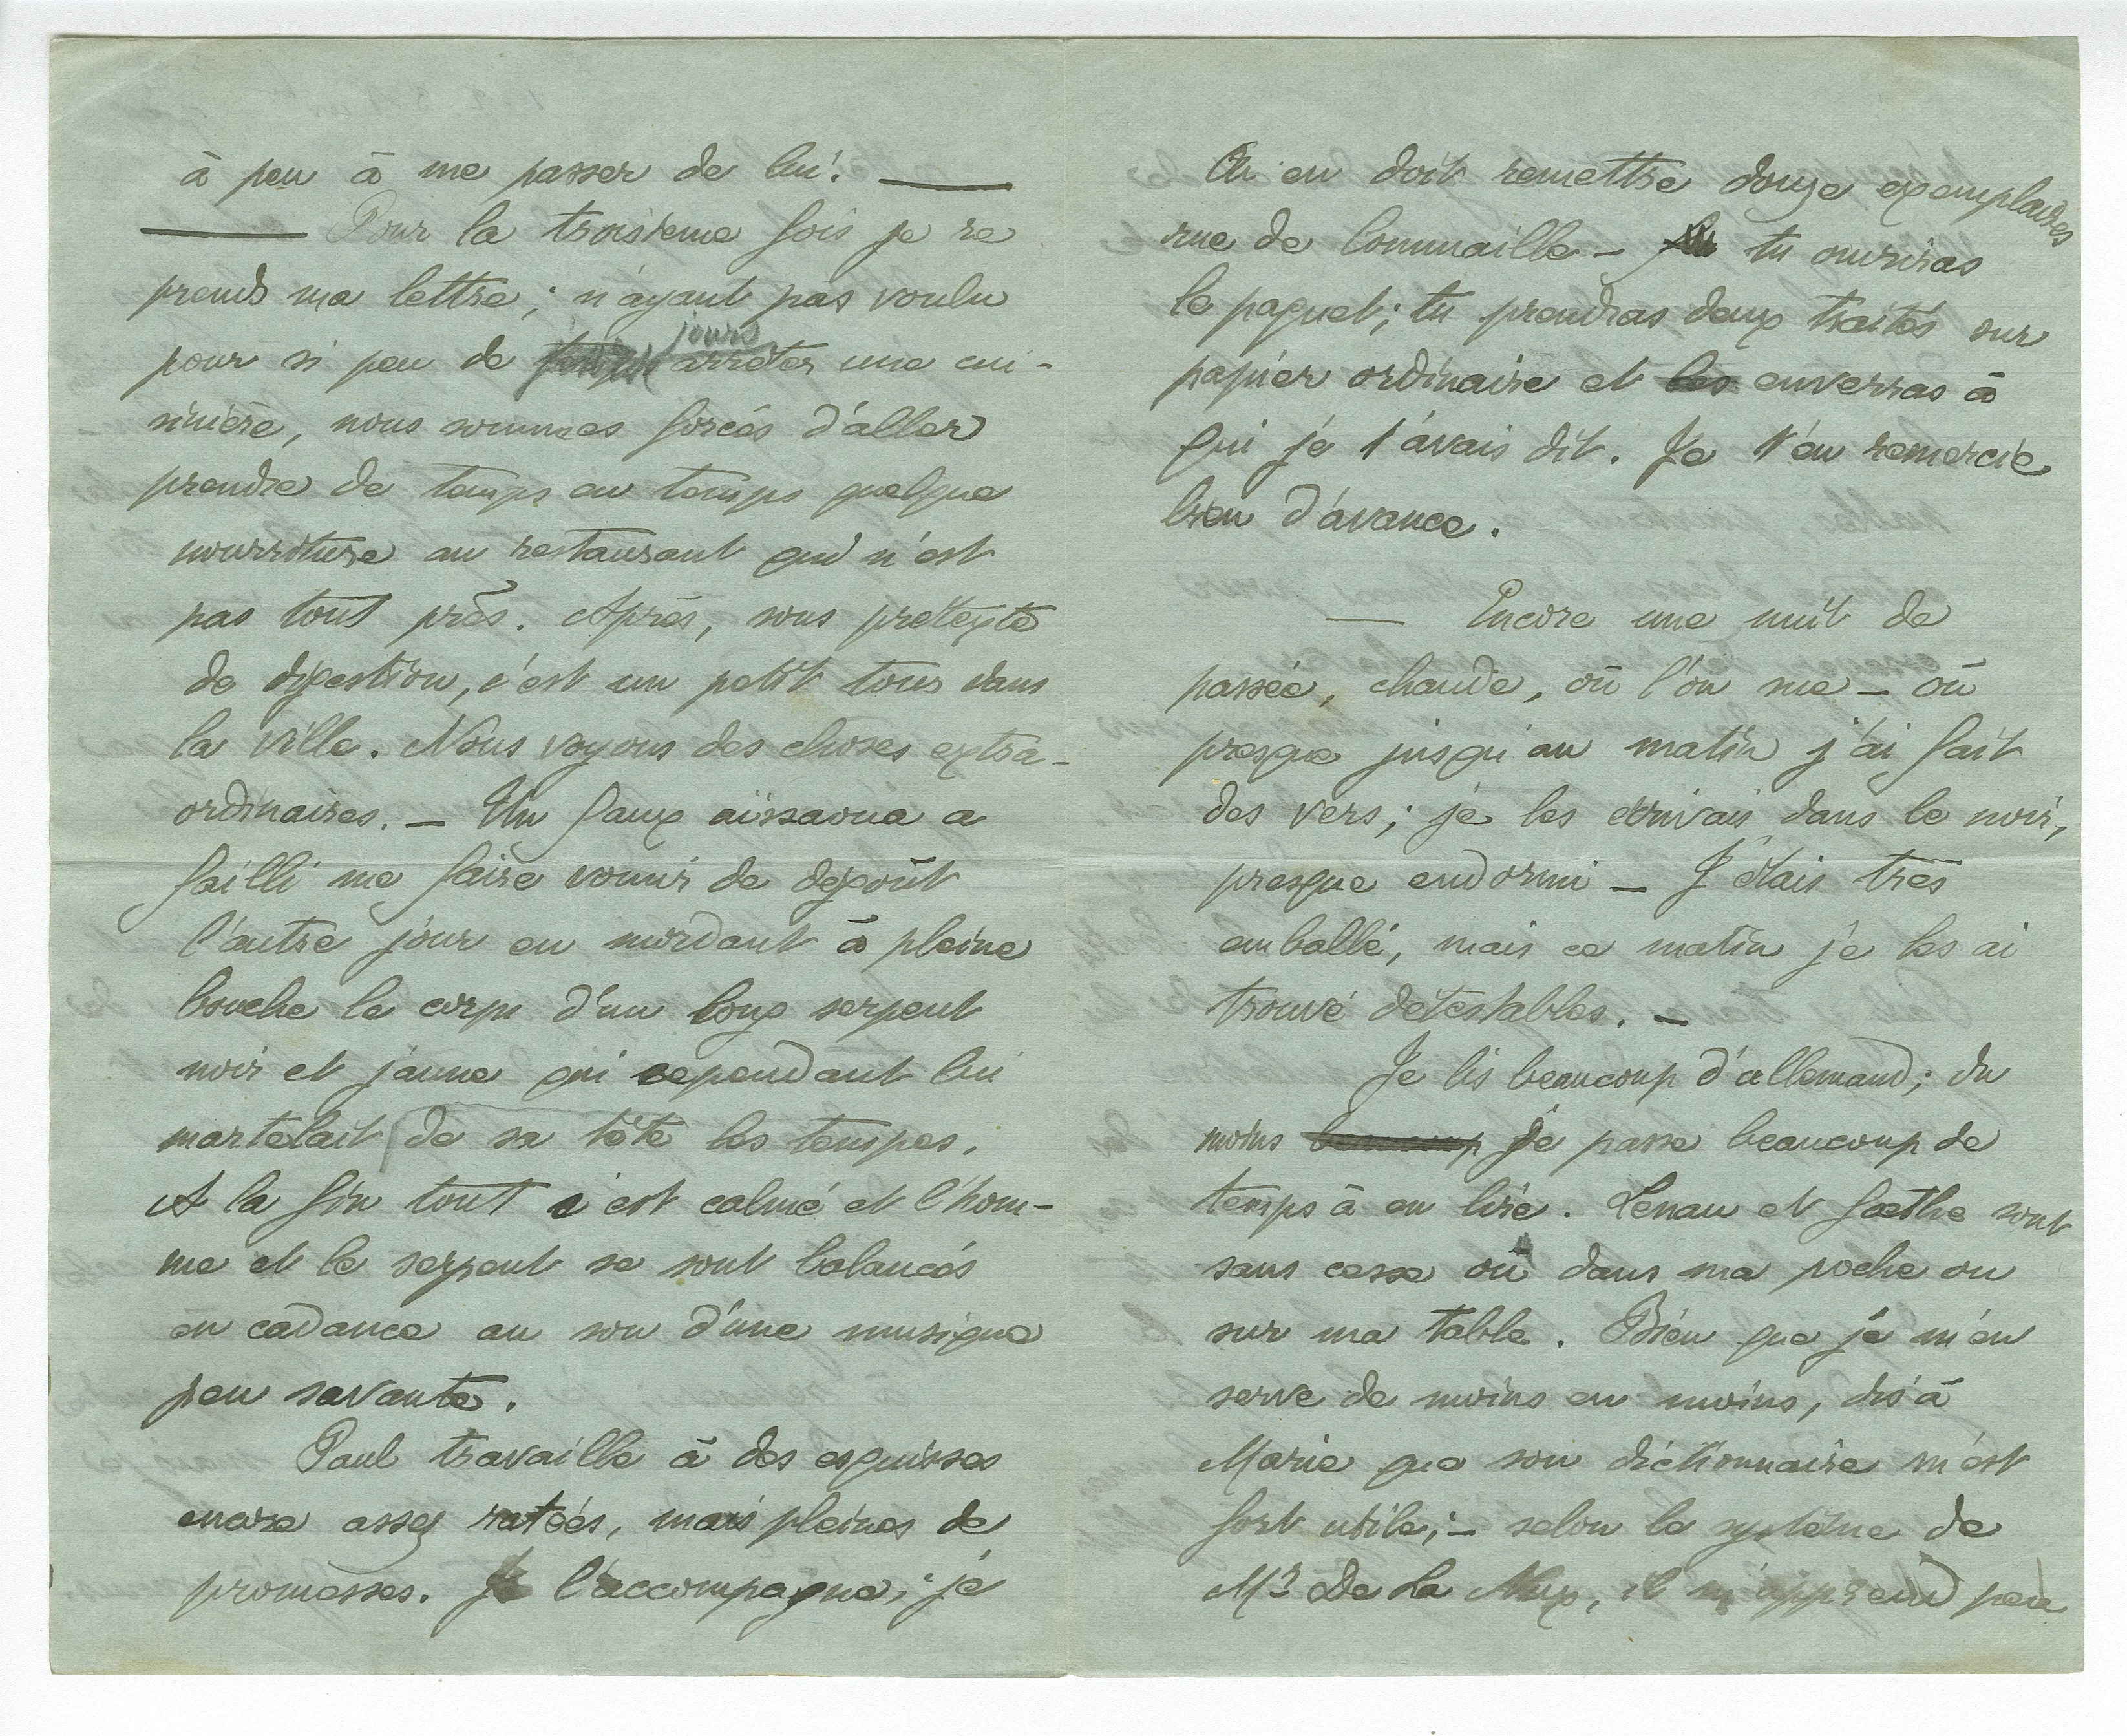 à peu à me passer de lui. ——
—— Pour la troisième fois je re
prends ma lettre ; n'ayant pas voulu
pour si peu de jours arrêter une cui-
sinière, nous sommes forcés d'aller
prendre de temps en temps quelque
nourriture au restaurant qui n'est
pas tout près. Après, sous prétexte
de digestion, c'est un petit tour dans
la ville. Nous voyons des choses extra-
ordinaires. — Un faux aïssaoua a
failli me faire vomir de dégoût
l'autre jour en mordant à pleine
bouche le corps d'un long serpent
noir et jaune qui cependant lui
martelait de sa tête les tempes.
A la fin tout s'est calmé et l'hom-
me et le serpent se sont balancés
en cadance au son d'une musique
peu savante.
Paul travaille à des esquisses
encore assez ratées, mais pleines de
promesses. Je l'accompagne ; je
On en doit remettre douze exemplaires
rue de Commaille — tu ouvriras
le paquet ; tu prendras deux traités sur
papier ordinaire et les enverras à
qui je t'avais dit. Je t'en remercie
bien d'avance.
— Encore une nuit de
passée, chaude, où l'on sue — où
presque jusqu'au matin j'ai fait
des vers ; je les écrivais dans le noir,
presque endormi — J'étais très
emballé, mais ce matin je les ai
trouvé détestables. —
Je lis beaucoup d'allemand ; du
moins beaucoup je passe beaucoup de
temps à en lire. Lenau et Gœthe sont
sans cesse ou dans ma poche ou
sur ma table. Bien que je m'en
serve de moins en moins, dis à
Marie que son dictionnaire m'est
fort utile ; — selon le système de
Mr De La Nux, il m'apprend peu